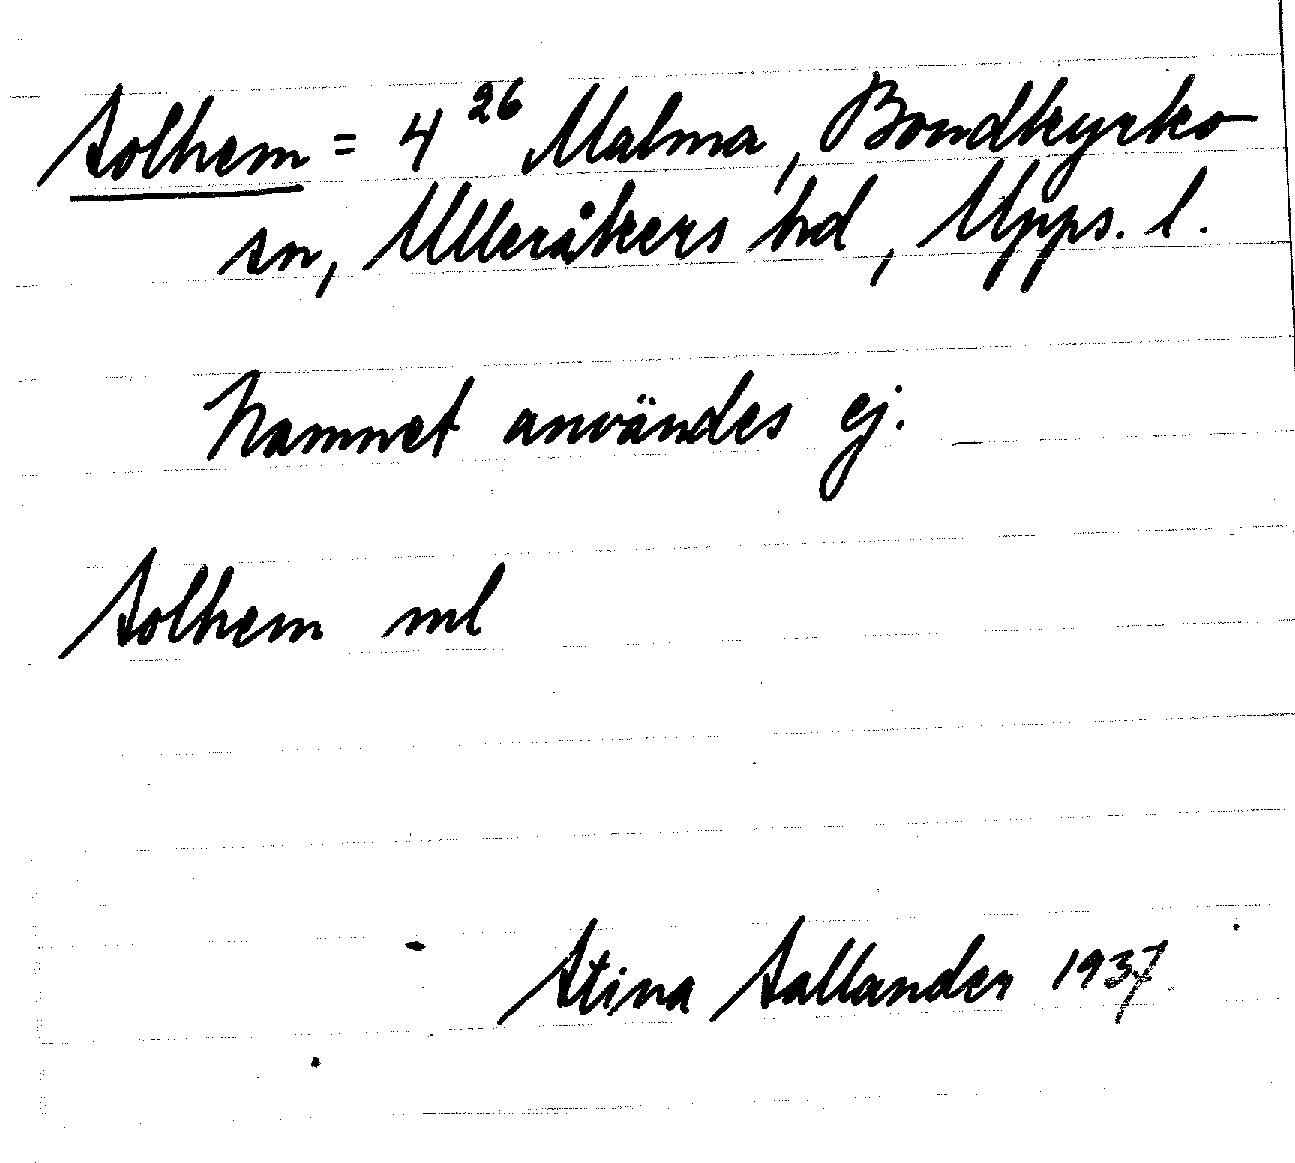 Solhem = 4²⁶ Malma, Bondkyrko
sn, Ulleråkers hd, Upps. l.
Namnet användes ej.
Solhem ml
Stina Sallander 1937